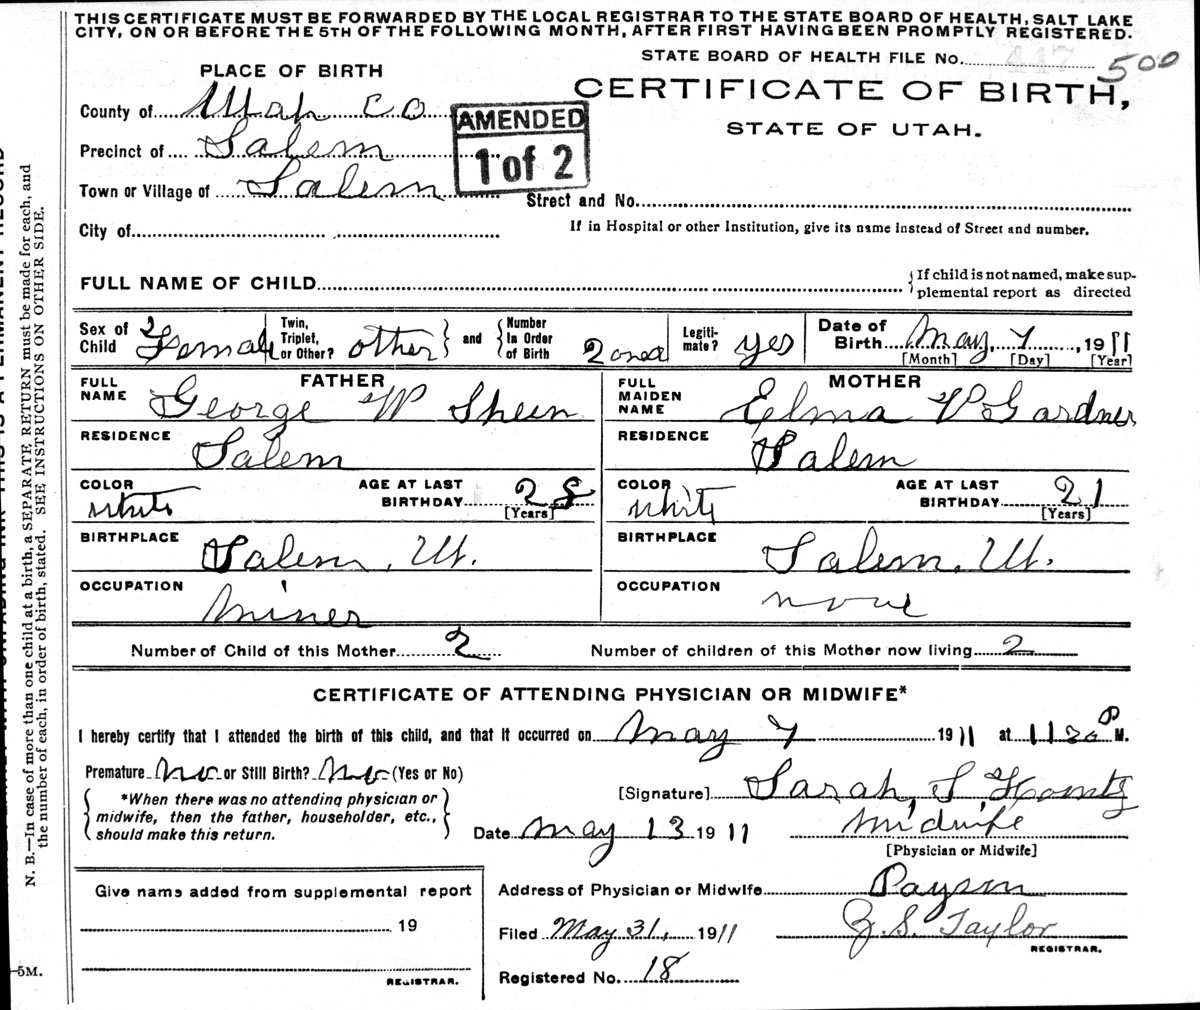 THIS CERTIFICATE MUST BE FORWARDED BY THE LOCAL REGISTRAR TO THE STATE BOARD OF HEALTH, SALT LAKE
CITY, ON OR BEFORE THE 5TH OF THE FOLLOWING MONTH, AFTER FIRST HAVING BEEN PROMPTLY REGISTERED.
STATE BOARD OF HEALTH FILE No. 447 500
PLACE OF BIRTH
CERTIFICATE OF BIRTH,
STATE OF UTAH.
County of Utah Co
AMENDED
1 of 2
Precinct of Salem
Town or Village of Salem
Street and No.
City of
If in Hospital or other Institution, give its name instead of Street and number.
FULL NAME OF CHILD
{ If child is not named, make sup-
plemental report as directed
Sex of Child Female
Twin, Triplet, or Other? other } and { Number In Order of Birth 2 ond
Legiti-mate? yes
Date of Birth May 7, 1911
[Month] [Day] [Year]
FATHER
FULL NAME George W Sheen
RESIDENCE Salem
COLOR White
AGE AT LAST BIRTHDAY 28
[Years]
BIRTHPLACE Salem, Ut.
OCCUPATION Miner
MOTHER
FULL MAIDEN NAME Elma V Gardner
RESIDENCE Salem
COLOR White
AGE AT LAST BIRTHDAY 21
[Years]
BIRTHPLACE Salem, Ut.
OCCUPATION none
Number of Child of this Mother 2
Number of children of this Mother now living 2
CERTIFICATE OF ATTENDING PHYSICIAN OR MIDWIFE*
I hereby certify that I attended the birth of this child, and that it occurred on May 7 1911 at 1130 P M.
Premature No or Still Birth? No (Yes or No)
*When there was no attending physician or
midwife, then the father, householder, etc.,
should make this return.
[Signature] Sarah, S,
Date May 13 1911
Midwife
[Physician or Midwife]
Give name added from supplemental report
19
REGISTRAR.
Address of Physician or Midwife Payson
Filed May 31, 1911
Z. S. Taylor
REGISTRAR.
Registered No. 18
-5M.
N. B.—In case of more than one child at a birth, a SEPARATE RETURN must be made for each, and
the number of each, in order of birth, stated. SEE INSTRUCTIONS ON OTHER SIDE.